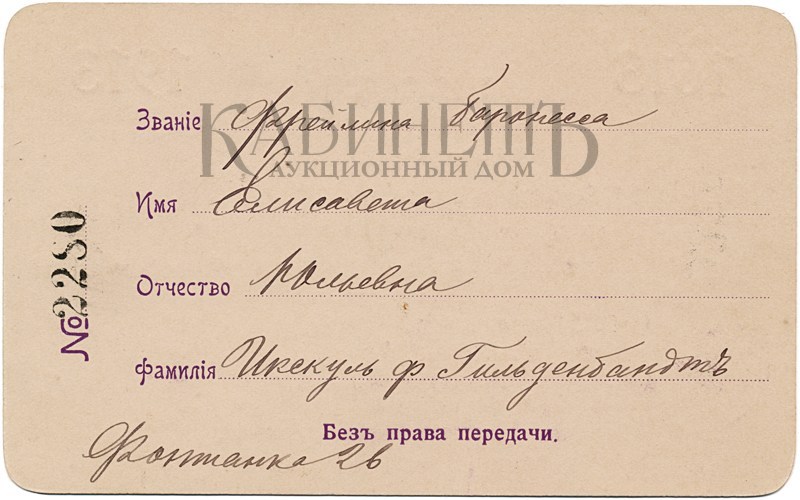 1915
1915
КАБИНЕТЪ
АУКЦИОННЫЙ ДОМ
Званіе Фрейлина Баронесса
Имя Елисавета
Отчество Юльевна
Фамилія Икскуль ф Гильденбандтъ
Безъ права передачи.
Фонтанка 26
№ 2280